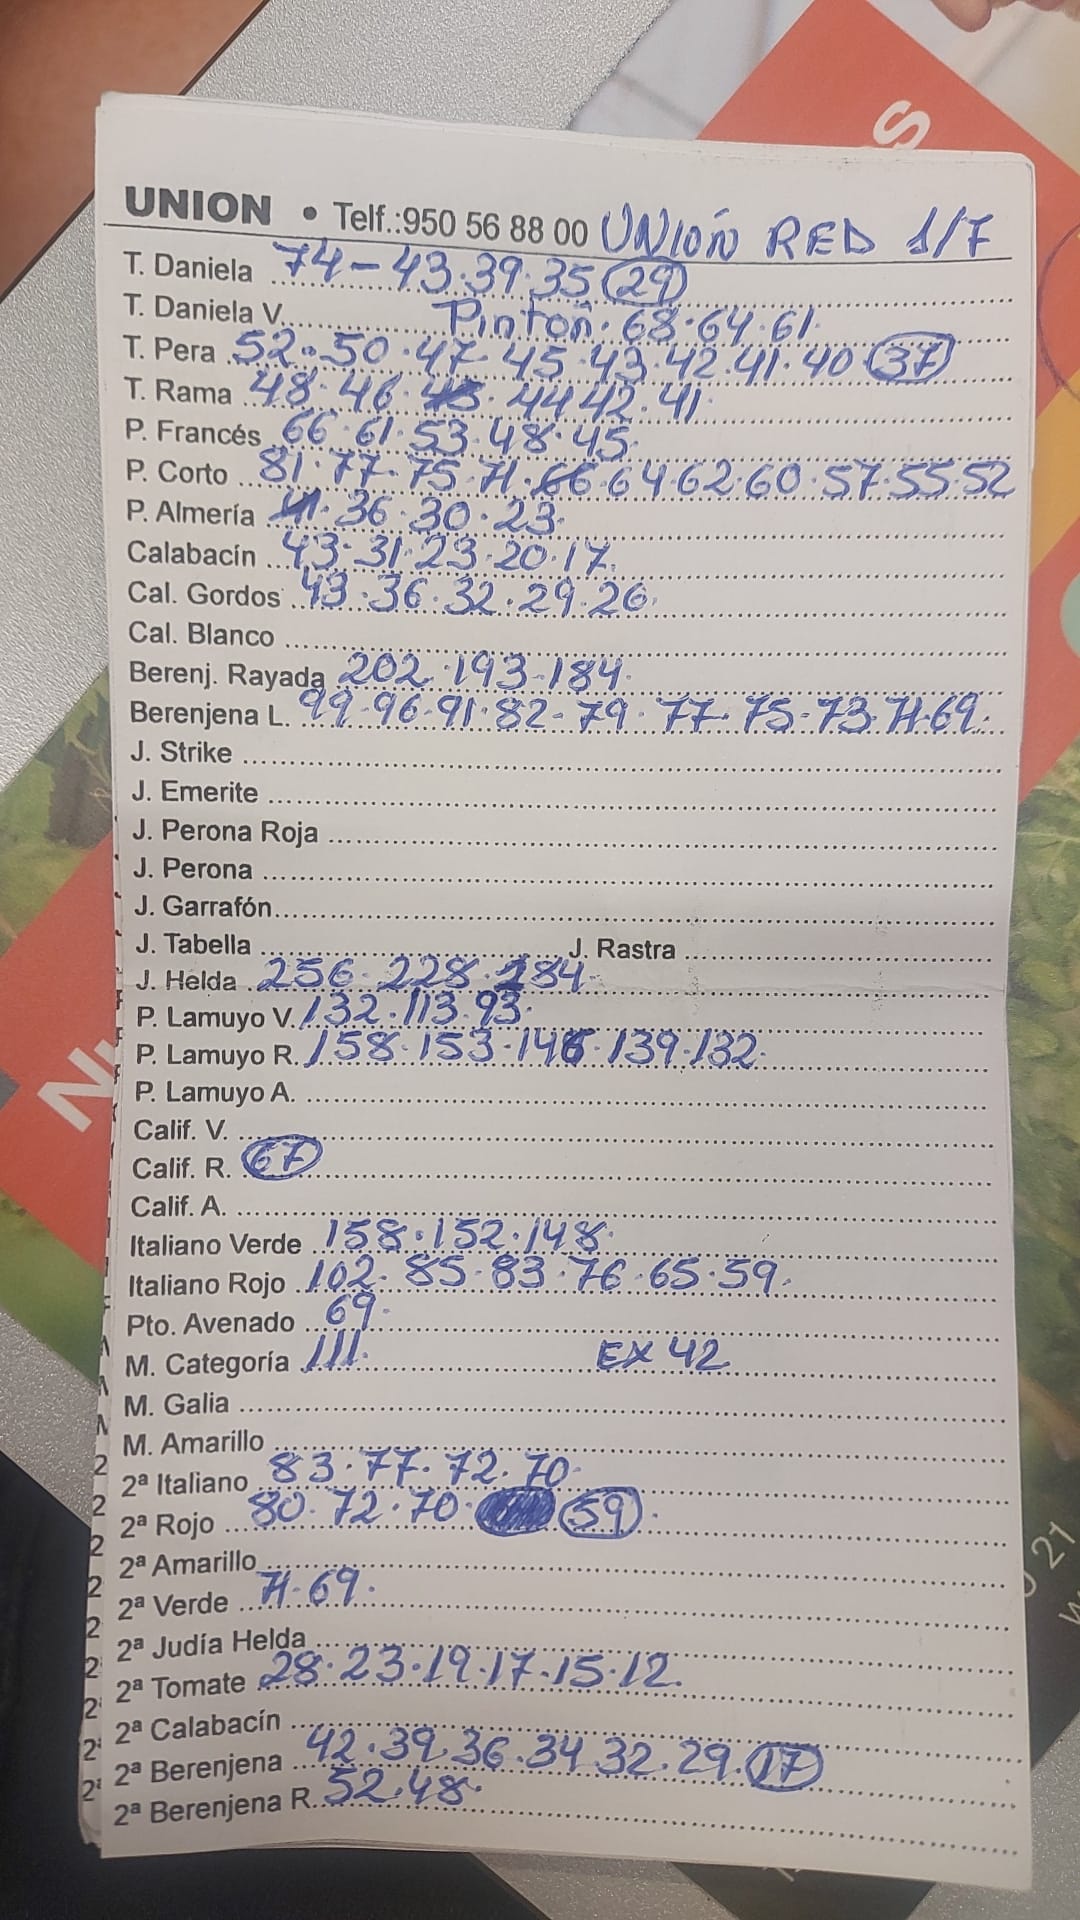 UNION • Telf.:950 56 88 00 UNION RED 1/7
T. Daniela 74-43·39·35 29
T. Daniela V. Pinton·68·64·61·
T. Pera 52·50·47·45·43·42·41·40 37
T. Rama 48·46·45·44 42·41·
P. Francés 66·61·53·48·45·
P. Corto 81·77·75·71·66·64·62·60·57·55·52
P. Almería 41·36·30·23·
Calabacín 43·31·23·20·17.
Cal. Gordos 43·36·32·29·26·
Cal. Blanco
Berenj. Rayada 202·193-184·
Berenjena L. 99·96·91·82-79·77·75-73·71·69·
J. Strike
J. Emerite
J. Perona Roja
J. Perona
J. Garrafón
J. Tabella J. Rastra
J. Helda 256·228·184·
P. Lamuyo V. 132·113·93·
P. Lamuyo R. 158·153·146·139·132·
P. Lamuyo A.
Calif. V.
Calif. R. 67
Calif. A.
Italiano Verde 158·152·148·
Italiano Rojo 102·85·83·76·65·59·
Pto. Avenado 69·
M. Categoría 111· EX 42
M. Galia
M. Amarillo
2ª Italiano 83·77·72·70·
2ª Rojo 80·72·70· 59·
2ª Amarillo
2ª Verde 71·69·
2ª Judía Helda
2ª Tomate 28·23·19·17·15·12.
2ª Calabacín
2ª Berenjena 42·39·36·34·32·29· 17
2ª Berenjena R. 52·48·